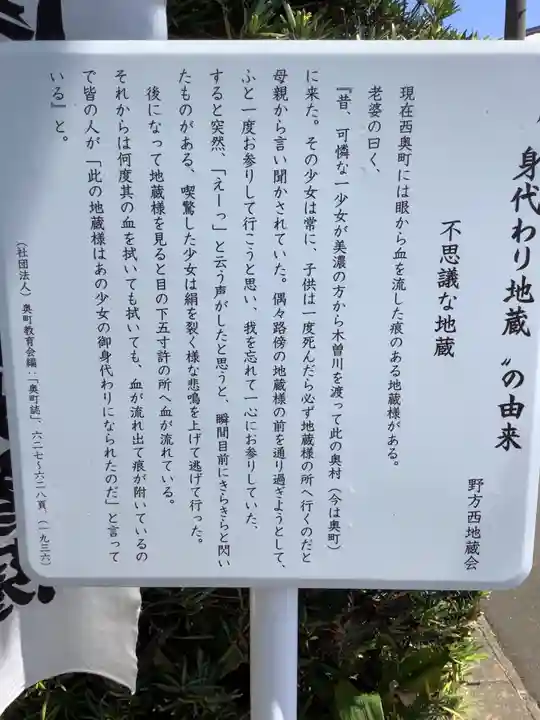 身代わり地蔵〟の由来
野方西地蔵会
不思議な地蔵
現在西奥町には眼から血を流した痕のある地蔵様がある。
老婆の曰く、
『昔、可憐な一少女が美濃の方から木曽川を渡って此の奥村（今は奥町）
に来た。その少女は常に、子供は一度死んだら必ず地蔵様の所へ行くのだと
母親から言い聞かされていた。偶々路傍の地蔵様の前を通り過ぎようとして、
ふと一度お参りして行こうと思い、我を忘れて一心にお参りしていた、
すると突然、「えーっ」と云う声がしたと思うと、瞬間目前にきらきらと閃い
たものがある、喫驚した少女は絹を裂く様な悲鳴を上げて逃げて行った。
後になって地蔵様を見ると目の下五寸許の所へ血が流れている。
それからは何度其の血を拭いても拭いても、血が流れ出て痕が附いているの
で皆の人が「此の地蔵様はあの少女の御身代わりになられたのだ」と言って
いる』と。
（社団法人）奥町教育会編：「奥町誌」、六二七～六二八頁、（一九三六）